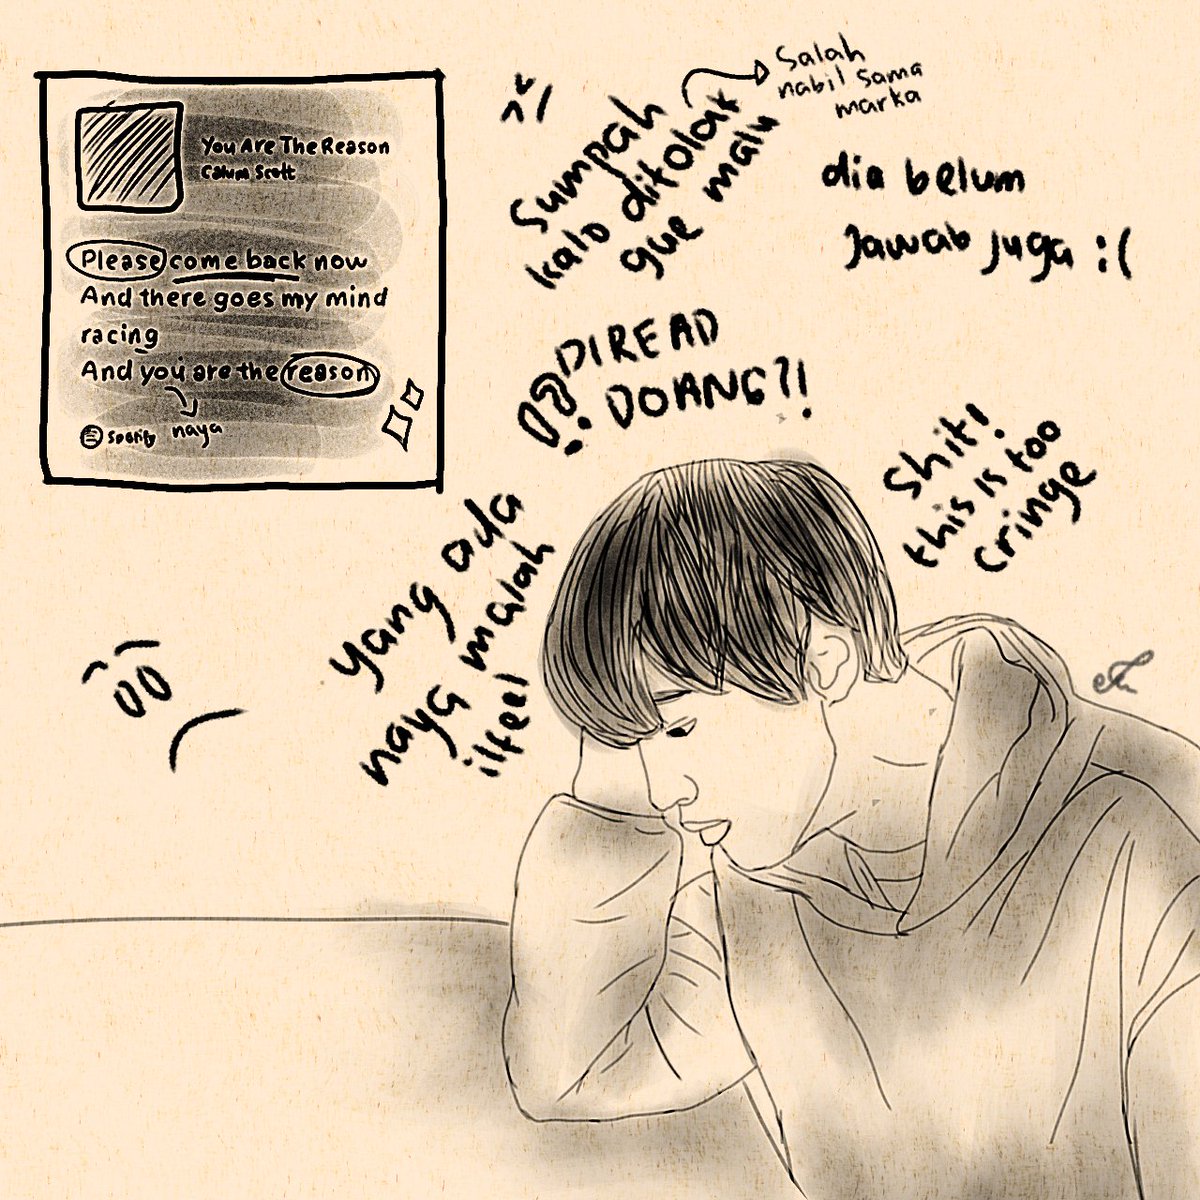 You Are The Reason
Calum Scott
Please come back now
And there goes my mind
racing
And you are the reason
naya
Spotify
Sumpah
kalo ditolak
gue malu
Salah
nabil sama
marka
dia belum
Jawab juga :(
DIREAD
DOANG?!
Shit!
this is too
cringe
yang ada
naya malah
ilfeel